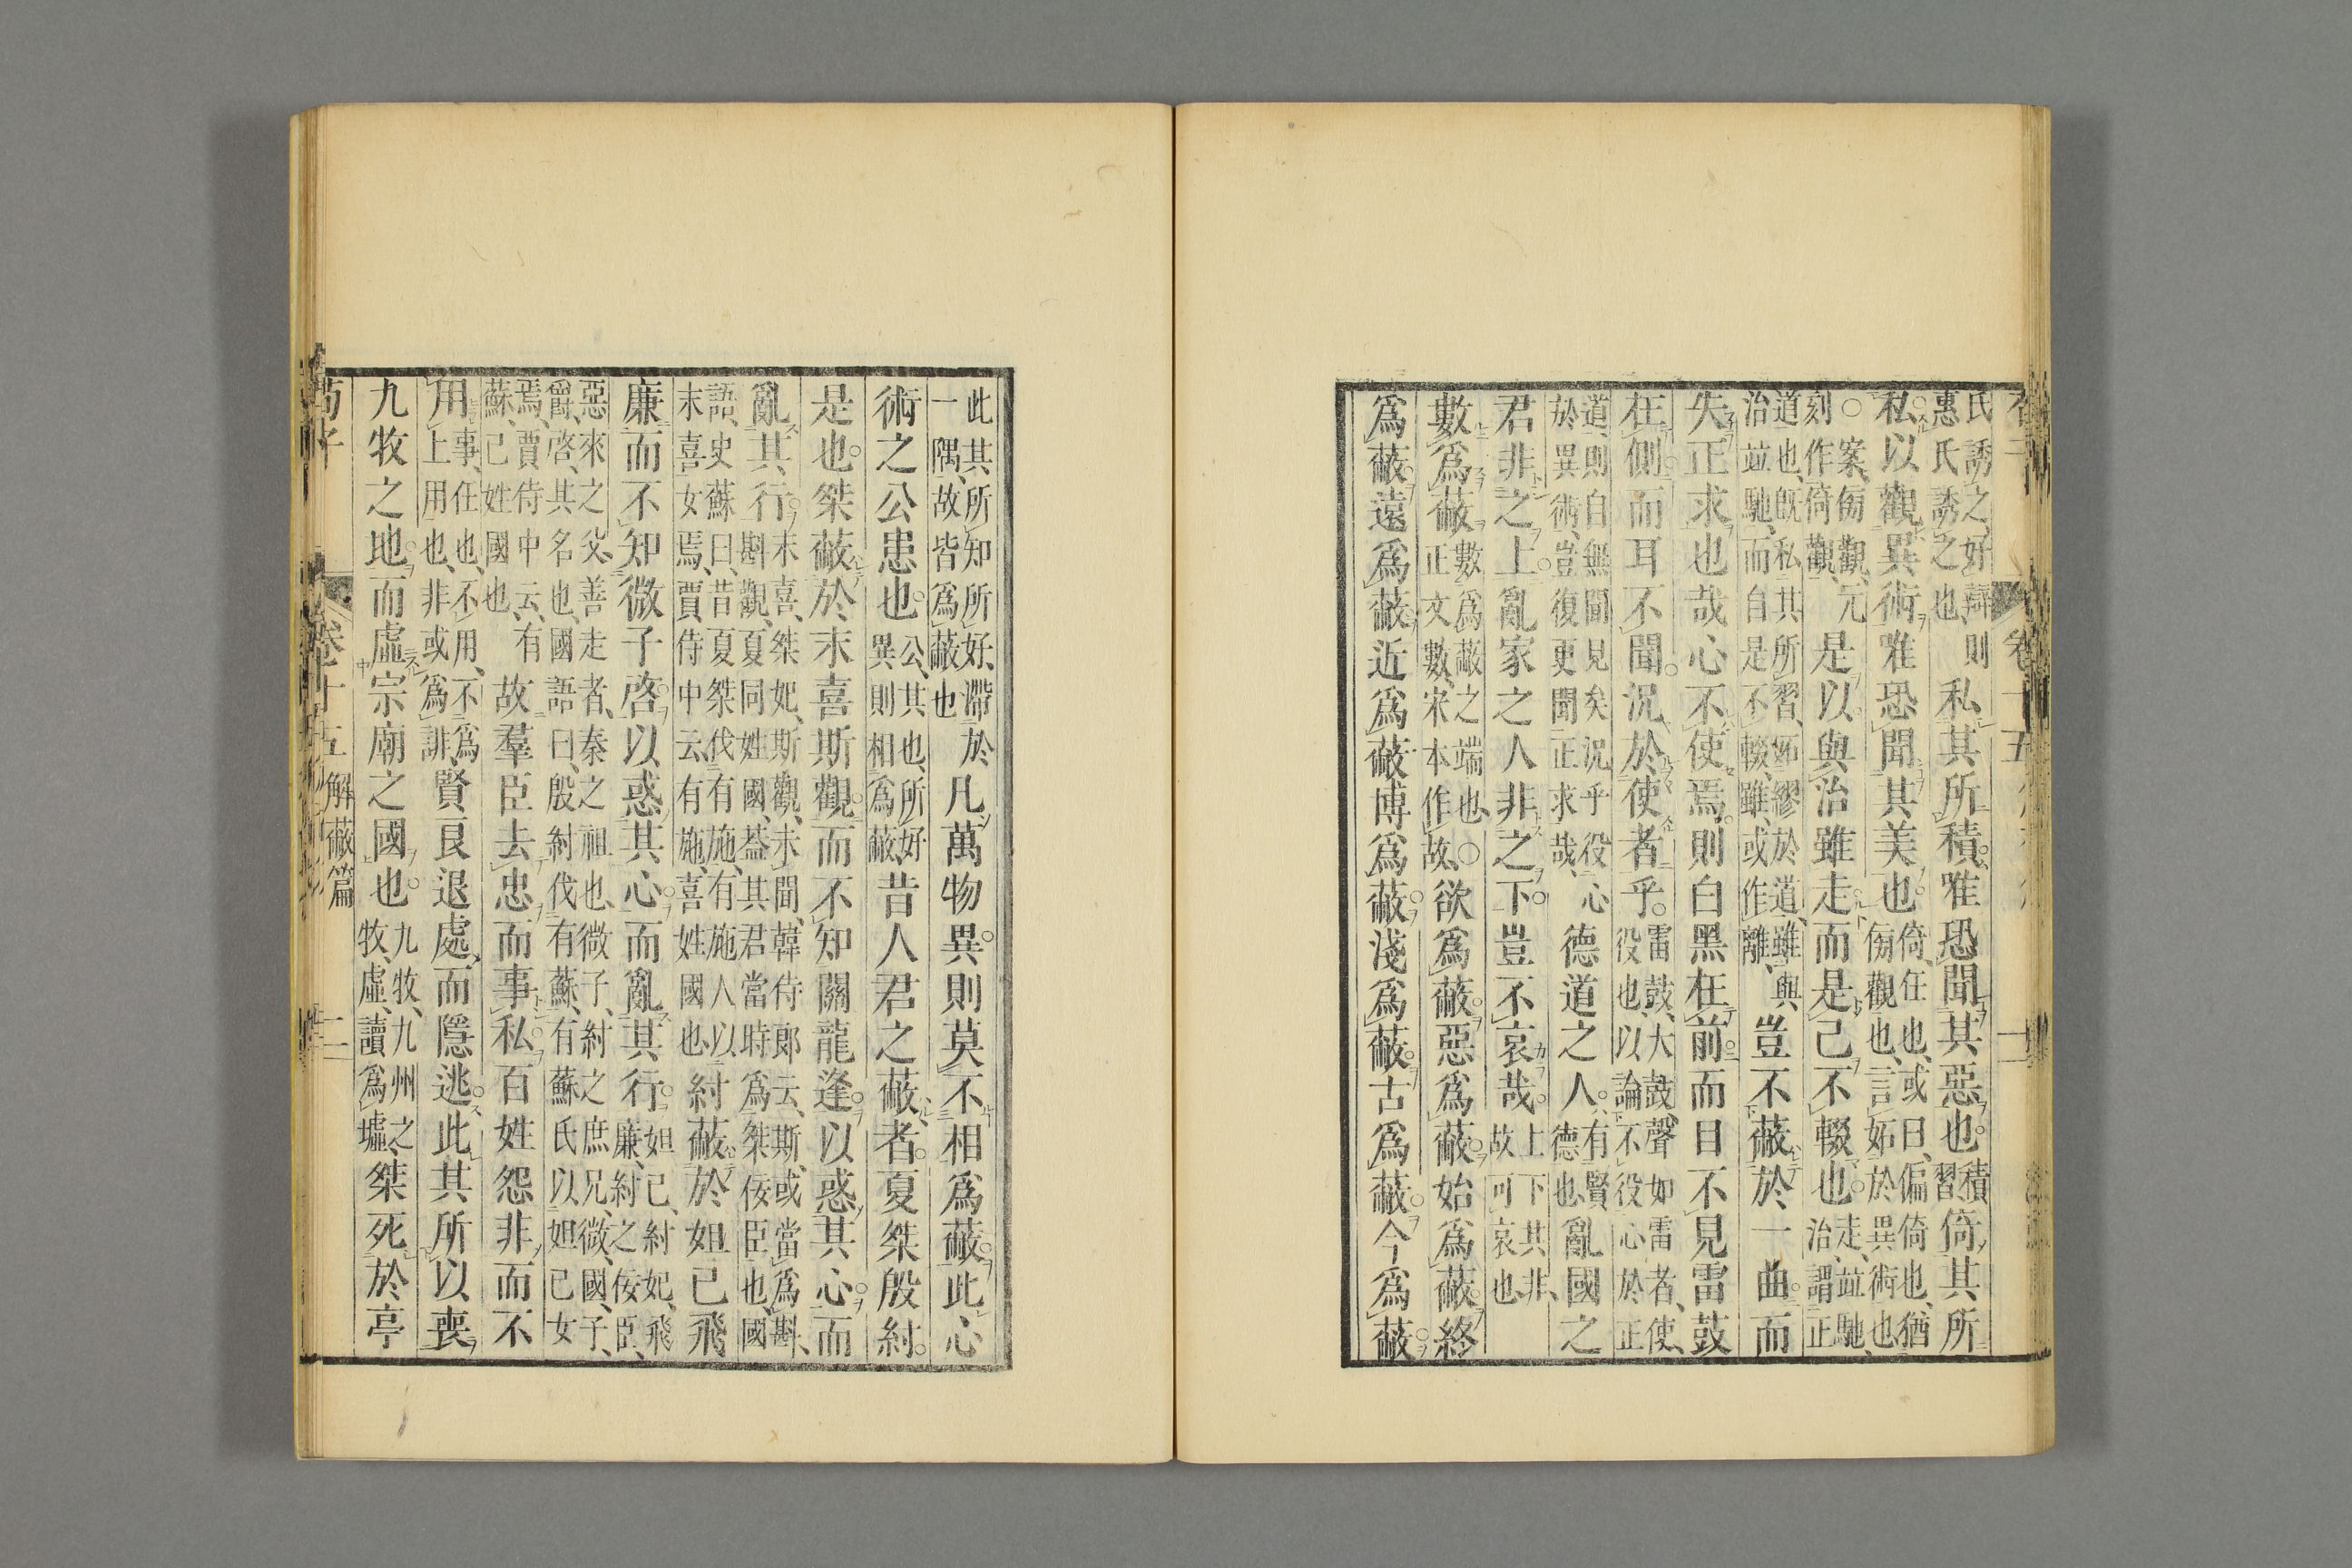 氏誘之、好辯、則惠氏誘之也、私其所積。唯恐聞其惡也。積習倚其所
私。以觀異術。唯恐聞其美也。倚任也、或曰、偏倚也、猶傍觀也、言妬於異術也
○案、傍觀、元刻作倚觀、是以與治雖走。而是己不輟也。走、竝馳、治、謂正
道也、既私其所習、妬繆於道、雖與治竝馳、而自是不輟、雖、或作離、豈不蔽於一曲。而
失正求也哉心不使焉。則白黑在前。而目不見雷鼓
在側。而耳不聞。況於使者乎。雷鼓、大鼓聲如雷者、使、役也、以論不役心於正
道、則自無聞見矣況乎役心於異術、豈復更聞正求哉、德道之人。有賢德也亂國之
君非之上。亂家之人非之下。豈不哀哉。上下其非、故可哀也
數爲蔽數爲蔽之端也、○正文數、宋本作故、欲爲蔽。惡爲蔽。始爲蔽。終
爲蔽。遠爲蔽。近爲蔽博爲蔽。淺爲蔽。古爲蔽。今爲蔽。
此其所知所好、滯於一隅、故皆爲蔽也凡萬物異。則莫不相爲蔽。此心
術之公患也。公、其也、所好異則相爲蔽、昔人君之蔽者。夏桀殷紂。
是也。桀蔽於末喜斯觀。而不知關龍逢。以惑其心。而
亂其行。末喜、桀妃、斯觀、未聞、韓侍郎云、斯、或當爲斟、斟觀、夏同姓國、蓋其君當時爲桀佞臣也、國
語、史蘇曰、昔夏桀伐有施、有施人以末喜女焉、賈侍中云、有施、喜姓國也紂蔽於妲己飛
廉而不知微子啓。以惑其心。而亂其行。妲己、紂妃、飛廉、紂之佞臣、
惡來之父、善走者、秦之祖也、微子、紂之庶兄、微、國、子、爵、啓、其名也、國語曰、殷紂伐有蘇、有蘇氏以妲己女
焉、賈侍中云、有蘇、己姓國也、故羣臣去忠而事私。百姓怨非而不
用。事、任也、不用、不爲上用也、非或爲誹、賢良退處、而隱逃。此其所以喪
九牧之地。而虛宗廟之國也。九牧、九州之牧、虛、讀爲墟、桀死於亭
荀子 卷十五 解蔽篇 二